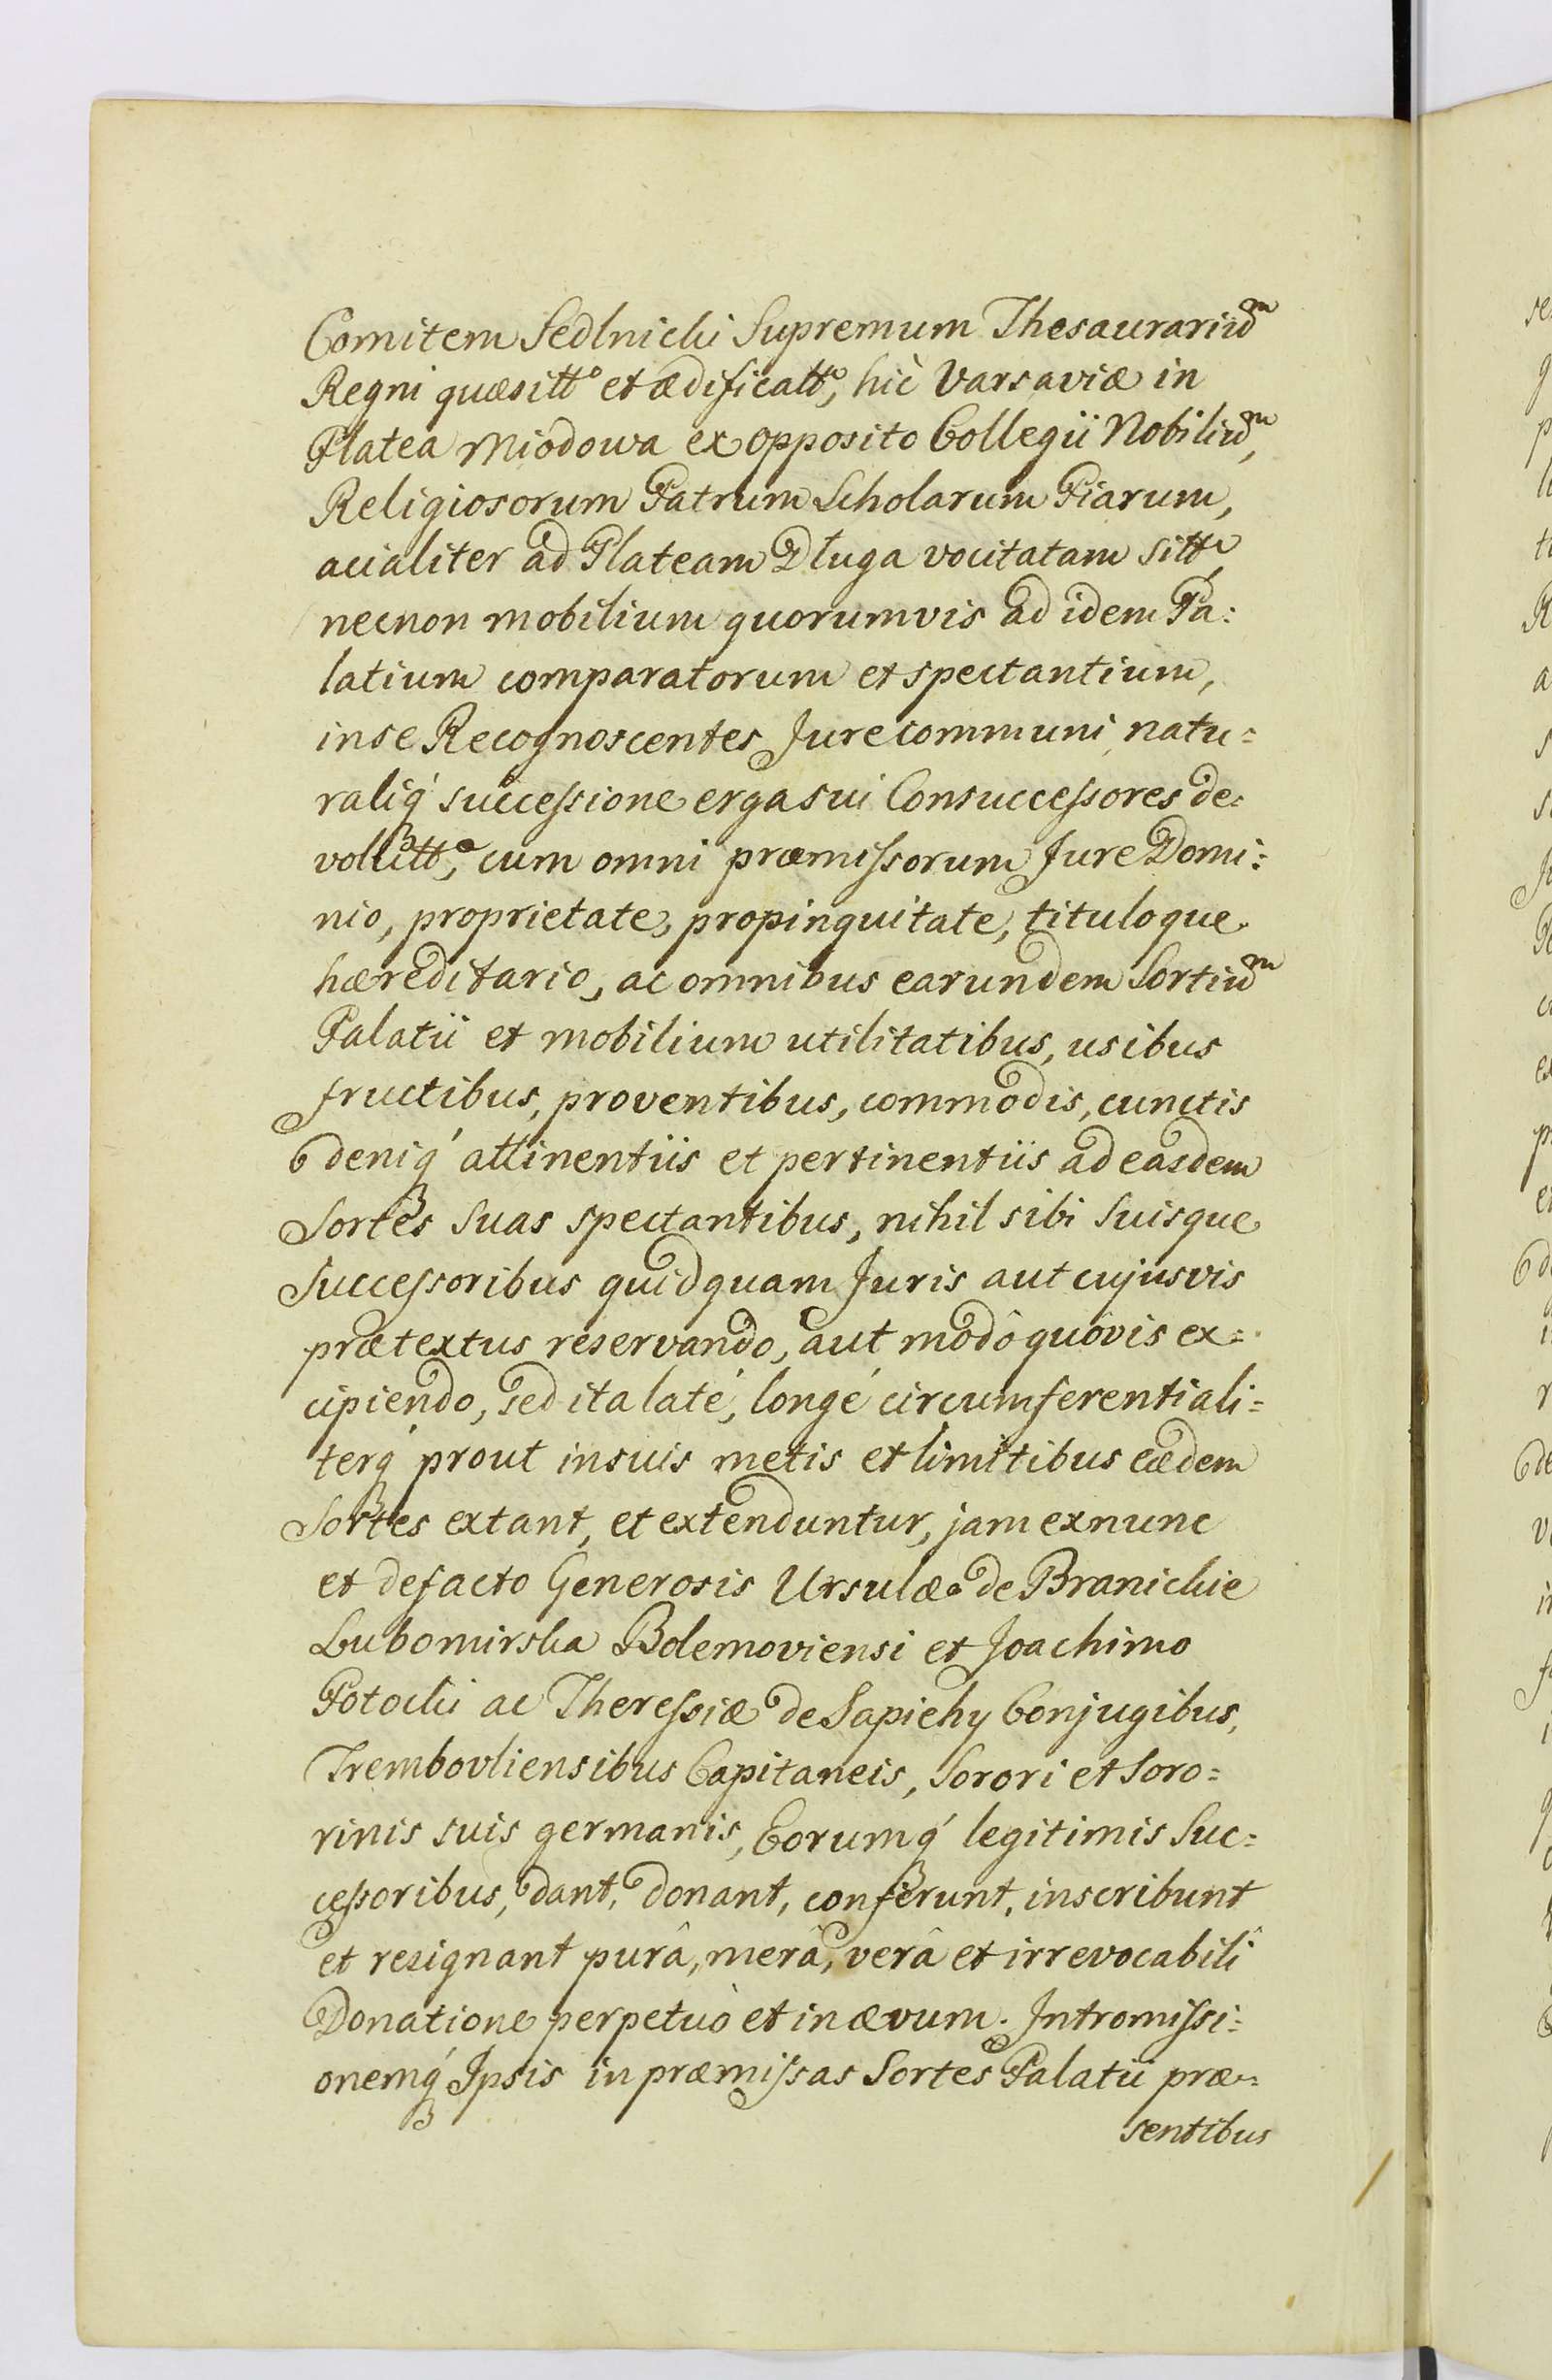 Comitem Sedlnicki Supremum Thesaurariũ
Regni quæsitto et ædificatto, hic Varsaviæ in
Platea Miodowa ex opposito Collegii Nobiliũ,
Religiosorum Patrum Scholarum Piarum,
acialiter ad Plateam Długa vocitatam sitti,
necnon mobilium quorumvis ad idem Pa:
latium comparatorum et spectantium,
in se Recognoscentes Jure communi natu:
raliq́ successione erga sui Consuccessores de:
volutta, cum omni præmissorum Jure Domi:
nio, proprietate, propinquitate, tituloque
hæreditario, ac omnibus earundem Sortiũ
Palatii et mobilium utilitatibus, usibus
fructibus, proventibus, commodis, cunctis
deniq́ attinentiis et pertinentiis ad easdem
Sortes Suas spectantibus, nihil sibi Suisque
Successoribus quidquam Juris aut cujusvis
prætextus reservando, aut modô quovis ex:
cipiendo, sed ita laté, longé circumferentiali:
terq́ prout in suis metis et limitibus eædem
Sortes extant, et extenduntur, jam exnunc
et defacto Generosis Ursulæ de Branickie
Lubomirska Bolemoviensi et Joachimo
Potocki ac Theressiæ de Sapiehy Conjugibus,
Trembovliensibus Capitaneis, Sorori et Soro:
rinis suis germanis, Eorumq́ legitimis Suc:
cessoribus, dant, donant, conferunt, inscribunt
et resignant purâ, merâ, verâ et irrevocabili
Donatione perpetuò et in ævum. Intromissi:
onemq́ Ipsis in præmissas Sortes Palatii præ:
sentibus